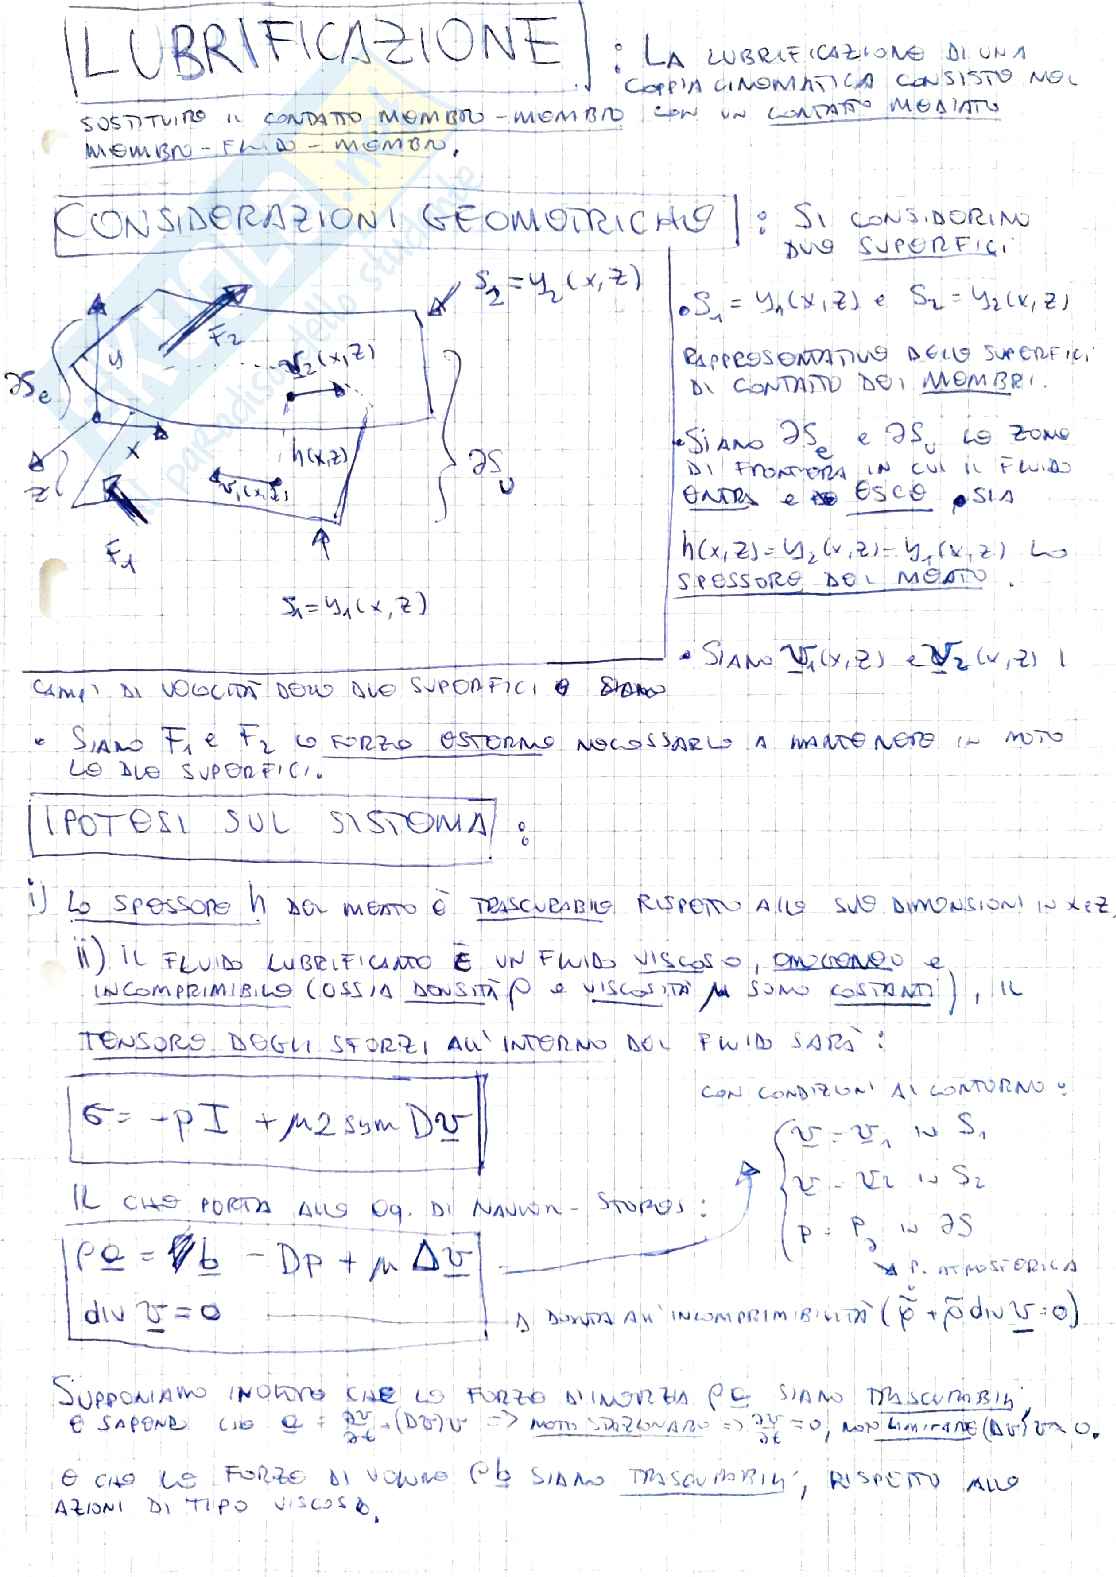 LUBRIFICAZIONE : LA LUBRIFICAZIONE DI UNA
COPPIA CINEMATICA CONSISTE NEL
SOSTITUIRE IL CONTATTO MEMBRO-MEMBRO CON UN CONTATTO MEDIATO
MEMBRO-FLUIDO-MEMBRO.
CONSIDERAZIONI GEOMETRICHE : SI CONSIDERINO
DUE SUPERFICI
S₂=y₂(x,z)
F₂
y
v₂(x,z)
∂Sₑ
x
h(x,z)
∂Sᵤ
z
v₁(x,z)
F₁
S₁=y₁(x,z)
• S₁ = y₁(x,z) e S₂ = y₂(x,z)
RAPPRESENTATIVE DELLE SUPERFICI
DI CONTATTO DEI MEMBRI.
• SIANO ∂Sₑ e ∂Sᵤ LE ZONE
DI FRONTIERA IN CUI IL FLUIDO
ENTRA e ESCE • SIA
h(x,z)=y₂(x,z)-y₁(x,z) LO
SPESSORE DEL MEATO.
• SIANO v₁(x,z) e v₂(x,z) I
CAMPI DI VELOCITÀ DELLE DUE SUPERFICI E SIANO
• SIANO F₁ e F₂ LE FORZE ESTERNE NECESSARIE A MANTENERE IN MOTO
LE DUE SUPERFICI.
IPOTESI SUL SISTEMA :
i) LO SPESSORE h DEL MEATO È TRASCURABILE RISPETTO ALLE SUE DIMENSIONI IN x e z.
ii) IL FLUIDO LUBRIFICANTE È UN FLUIDO VISCOSO, OMOGENEO e
INCOMPRIMIBILE (OSSIA DENSITÀ ρ e VISCOSITÀ μ SONO COSTANTI), IL
TENSORE DEGLI SFORZI ALL'INTERNO DEL FLUIDO SARÀ:
σ = -pI + μ2 sym Dv
CON CONDIZIONI AL CONTORNO:
v = v₁ in S₁
v = v₂ in S₂
p = Pₐ in ∂S
P. ATMOSFERICA
IL CHE PORTA ALLE EQ. DI NAVIER-STOKES:
ρa = b - Dp + μ Δv
div v = 0
DOVUTA ALL'INCOMPRIMIBILITÀ (ρ̇ + ρ div v = 0)
SUPPONIAMO INOLTRE CHE LE FORZE D'INERZIA ρa SIANO TRASCURABILI,
E SAPENDO CHE a = ∂v/∂t + (Dv)v => MOTO STAZIONARIO => ∂v/∂t = 0, (Dv)v≈0.
E CHE LE FORZE DI VOLUME ρb SIANO TRASCURABILI, RISPETTO ALLE
AZIONI DI TIPO VISCOSO.